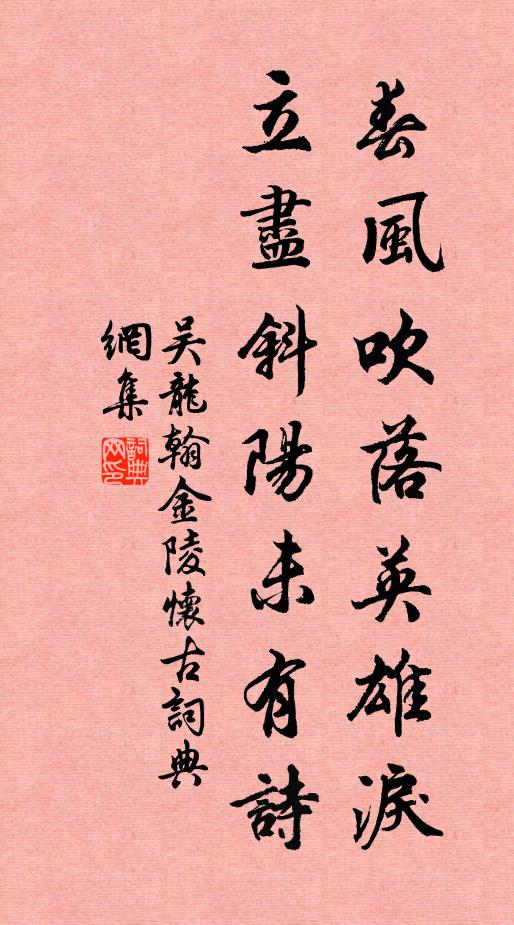 春風吹落英雄淚
立盡斜陽未有詩
吴龍翰金陵懷古詞典
網集
詞典網印